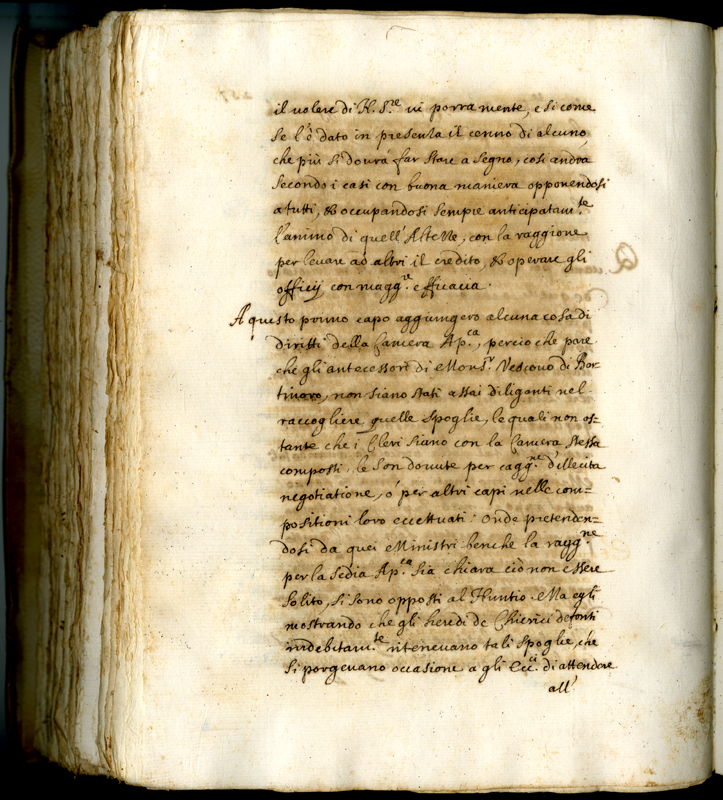 il volere di N. S.re vi porra mente, e si come
se l'è dato in presenza il cenno di alcuno,
che più si dourà far stare a segno, così andrà
secondo i casi con buona maniera opponendosi
a tutti, & occupandosi sempre anticipatam.te
l'animo di quell'Altezze, con la raggione
per leuare ad altri il credito, & operare gli
officij con magg.re efficacia.
A questo primo capo aggiungerò alcuna cosa di
diritti della Camera Ap.ca, percio che pare
che gli antecessori di Mons.r Vescouo di Ber-
tinoro, non siano stati assai diligenti nel
raccogliere quelle spoglie, le quali non os-
tante che i Cleri siano con la Camera stessa
composti, le son douute per cagg.ne d'illecita
negotiatione, ò per altri capi nelle com=
positioni loro eccettuati. Onde pretenden=
dosi da quei Ministri benche la ragg.ne
per la Sedia Ap.ca sia chiara ciò non essere
solito, si sono opposti al Nuntio. Ma egli
mostrando che gli heredi de Chierici defonti
indebitam.te riteneuano tali spoglie, che
si porgeuano occasione a gli Ecc.ci di attendere
all'